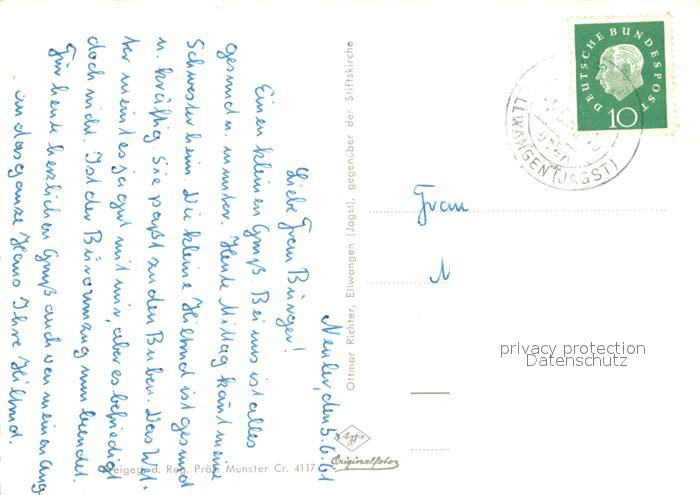 Neuler, den 5.6.61
Liebe Frau Bürger!
Einen kleinen Gruß. Bei uns ist alles
gesund u. munter. Heute Mittag kam meine
Schwester heim. Die kleine Hiltrud ist gesund
u. kräftig. Sie paßt zu den Buben. Das Wet-
ter meint es ja gut mit mir, aber es befriedigt
doch nicht. Ist der Büroumzug nun beendet.
Für heute herzlichen Gruß auch von meinen Ang.
an das ganze Haus Ihre Hiltrud.
Ottmar Richter, Ellwangen (Jagst), gegenüber der Stiftskirche
Reg. Präs. Münster Cr. 4117
Agfa
Originalfoto
DEUTSCHE BUNDESPOST
10
ELLWANGEN (JAGST)
Frau
privacy protection
Datenschutz